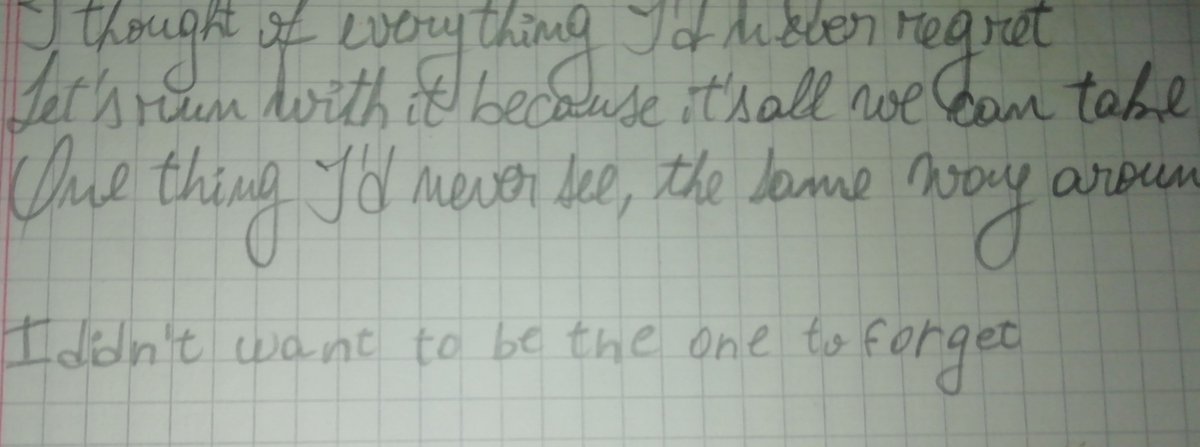 I thought of everything I'd never regret
Let's run with it because it's all we can take
One thing I'd never see, the same way aroun
I didn't want to be the one to forget